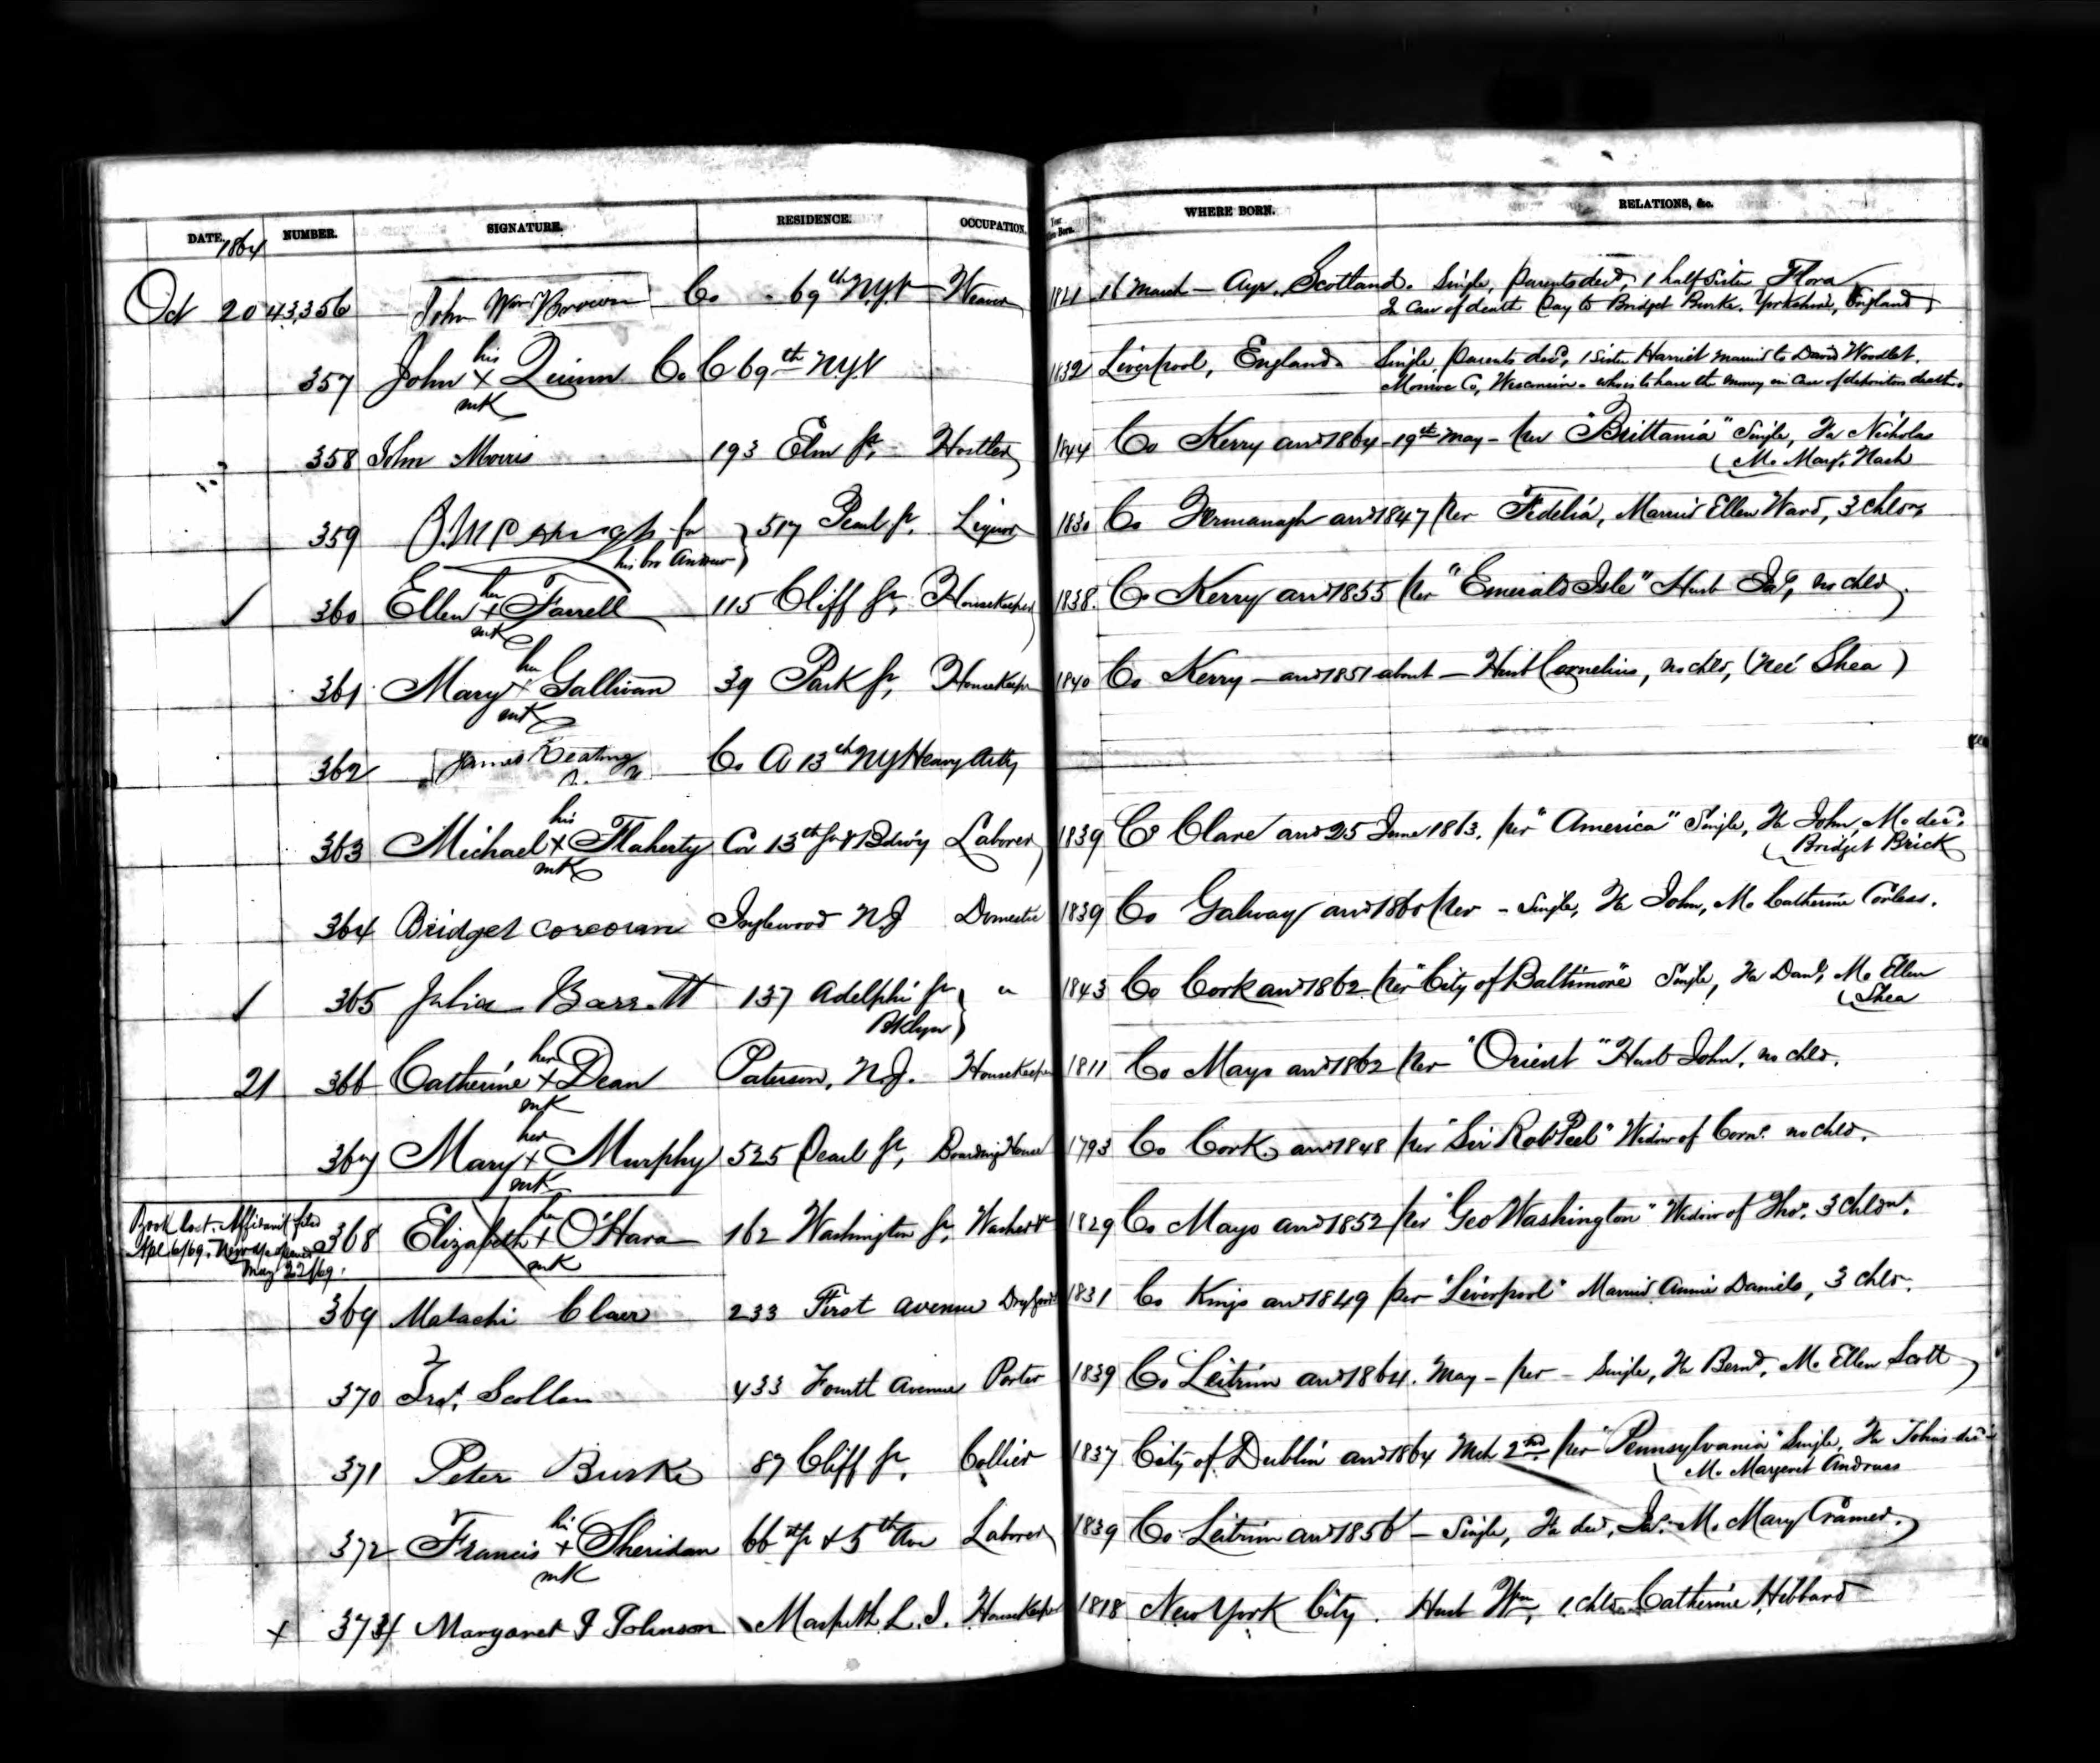 DATE. NUMBER. SIGNATURE. RESIDENCE. OCCUPATION. Year Born. WHERE BORN. RELATIONS, &c.
1864
Oct 20 43,356 John Wm Brown Co 69th NYV Weaver 1821 16 March - Ayr, Scotland. Single, parents decd, 1 half sister Flora
In case of death Pay to Bridget Burke, Yorkshire, England
his
357 John X Quinn Co C 69th NYV 1832 Liverpool, England Single, parents decd, 1 sister Harriet married to David Woodlet.
mk Monroe Co, Wisconsin. who is to have the money in case of depositors death.
358 John Morris 193 Elm st. Hostler 1844 Co Kerry arrd 1864 - 19th May - per "Brittania" Single, Fa Nicholas
Mo Margt. Nash
359 for 517 Pearl st. Liquor 1830 Co Fermanagh arrd 1847 per Fidelia, Married Ellen Ward, 3 chldn
his bro Andrew
her
360 Ellen + Farrell 115 Cliff st, Housekeeper 1838. Co Kerry arrd 1855 per "Emerald Isle" Husb Jas, no chld.
mk
her
361 Mary + Gallivan 39 Park st, Housekeeper 1840 Co Kerry - arrd 1851 about - Husb Cornelius, no chld, (Neé Shea)
mk
362 James Keating Co A 13th NY Heavy Arty
his
363 Michael X Flaherty Cor 13th st & Bdwy Laborer 1839 Co Clare arrd 25 June 1863. per "America" Single, Fa John, Mo decd.
mk Bridget Brick
364 Bridget corcoran Inglewood N.J Domestic 1839 Co Galway arrd 1860 per - Single, Fa John, Mo Catherine Corless.
365 Julia Barrett 137 Adelphi st " 1843 Co Cork arrd 1862 per "City of Baltimore" Single, Fa Danl, Mo Ellen
Bklyn Shea
her
21 366 Catherine + Dean Paterson, N.J. Housekeeper 1811 Co Mayo arrd 1862 per "Orient" Husb John, no chld.
mk
her
367 Mary + Murphy 525 Pearl st, Boarding House 1793 Co Cork, arrd 1848 per "Sir Robt Peel" Widow of Corns. no chld.
mk
Book lost. Affidavit filed her
Apl 6/69. New a/c opened 368 Elizabeth + O'Hara 162 Washington st, Washer 1829 Co Mayo arrd 1852 per "Geo Washington" Widow of Thos. 3 chldn.
May 22/69. mk
369 Malachi Claer 233 First avenue Dry goods 1831 Co Kings arrd 1849 per "Liverpool" Married Annie Daniels, 3 chld.
370 Scollan 433 Fourth Avenue Porter 1839 Co Leitrim arrd 1864. May - per - Single, Fa Bernd, Mo Ellen Scott
371 Peter Burke 87 Cliff st, Collier 1837 City of Dublin arrd 1864 Mch 2nd per "Pennsylvania" Single, Fa John decd
Mo Margaret Andrews
his
372 Francis + Sheridan 66th st & 5th Ave Laborer 1839 Co Leitrim arrd 1856 - Single, Fa decd, Jas. Mo Mary Cramer.
mk
+ 373 Margaret J Johnson Maspeth L.I. Housekeeper 1818 New York City. Husb Wm, 1 chld Catherine Hibbard